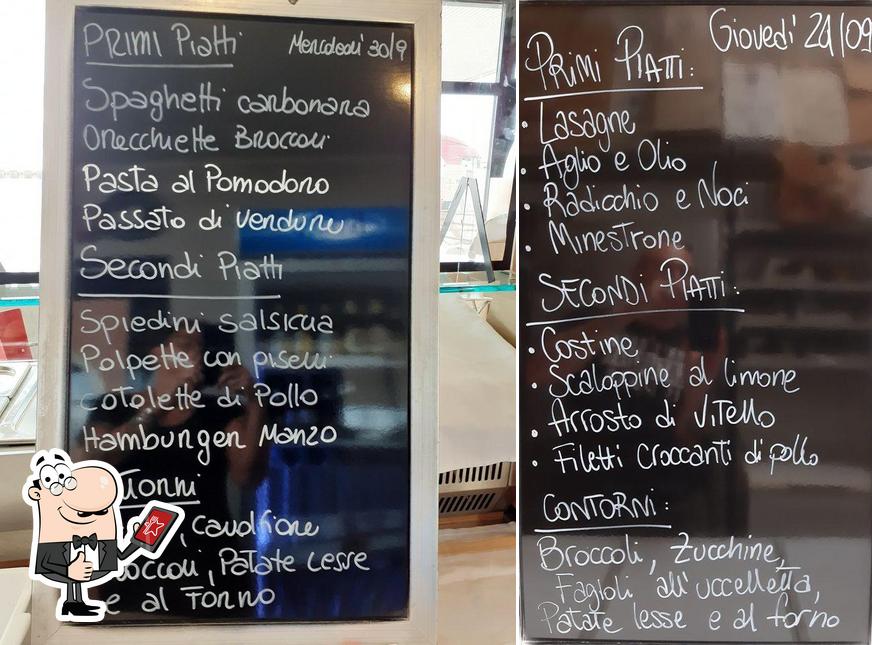 PRIMI Piatti
Mercoledi' 30/9
Spaghetti carbonara
Orecchiette Broccoli
Pasta al Pomodoro
Passato di verdure
Secondi Piatti
Spiedini salsicua
Polpette con piselli
cotolette di Pollo
Hamburger Manzo
, cavolfiore
, Patate lesse
e al Forno
Giovedì 24/09
PRIMI PIATTI:
• Lasagne
• Aglio e Olio
• Radicchio e Noci
• Minestrone
SECONDI PIATTI:
• Costine
• Scaloppine al limone
• Arrosto di Vitello
• Filetti Croccanti di pollo
CONTORNI:
Broccoli, Zucchine,
Fagioli all'uccelletta,
Patate lesse e al forno